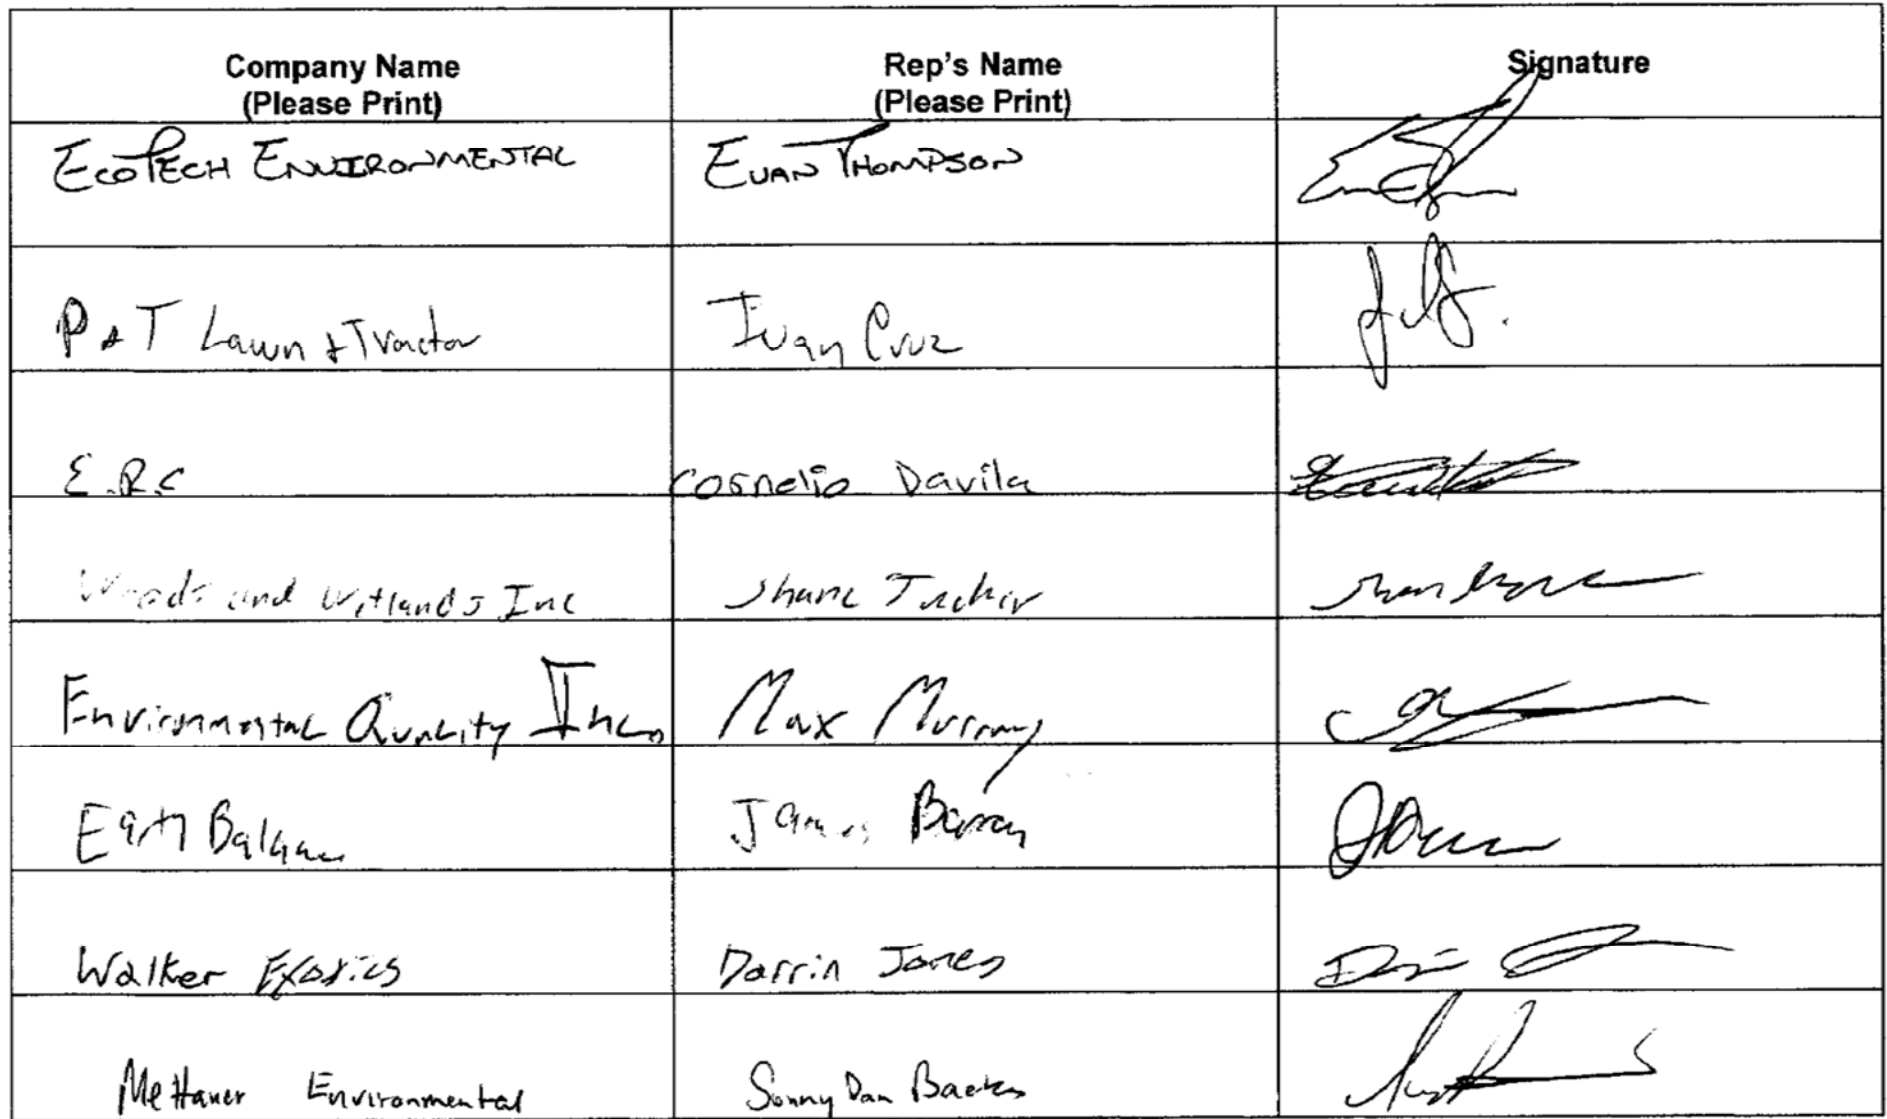 Company Name Rep's Name Signature
(Please Print) (Please Print)
ECOTECH ENVIRONMENTAL EVAN THOMPSON
P & T Lawn & Tractor Ivan Cruz
E.R.C Cornelio Davila
Woods and Wetlands Inc Shane Tucker
Environmental Quality Inc. Max Murray
Earth Balance James Barry
Walker Exotics Darrin Jones
Mettauer Environmental Sonny Dan